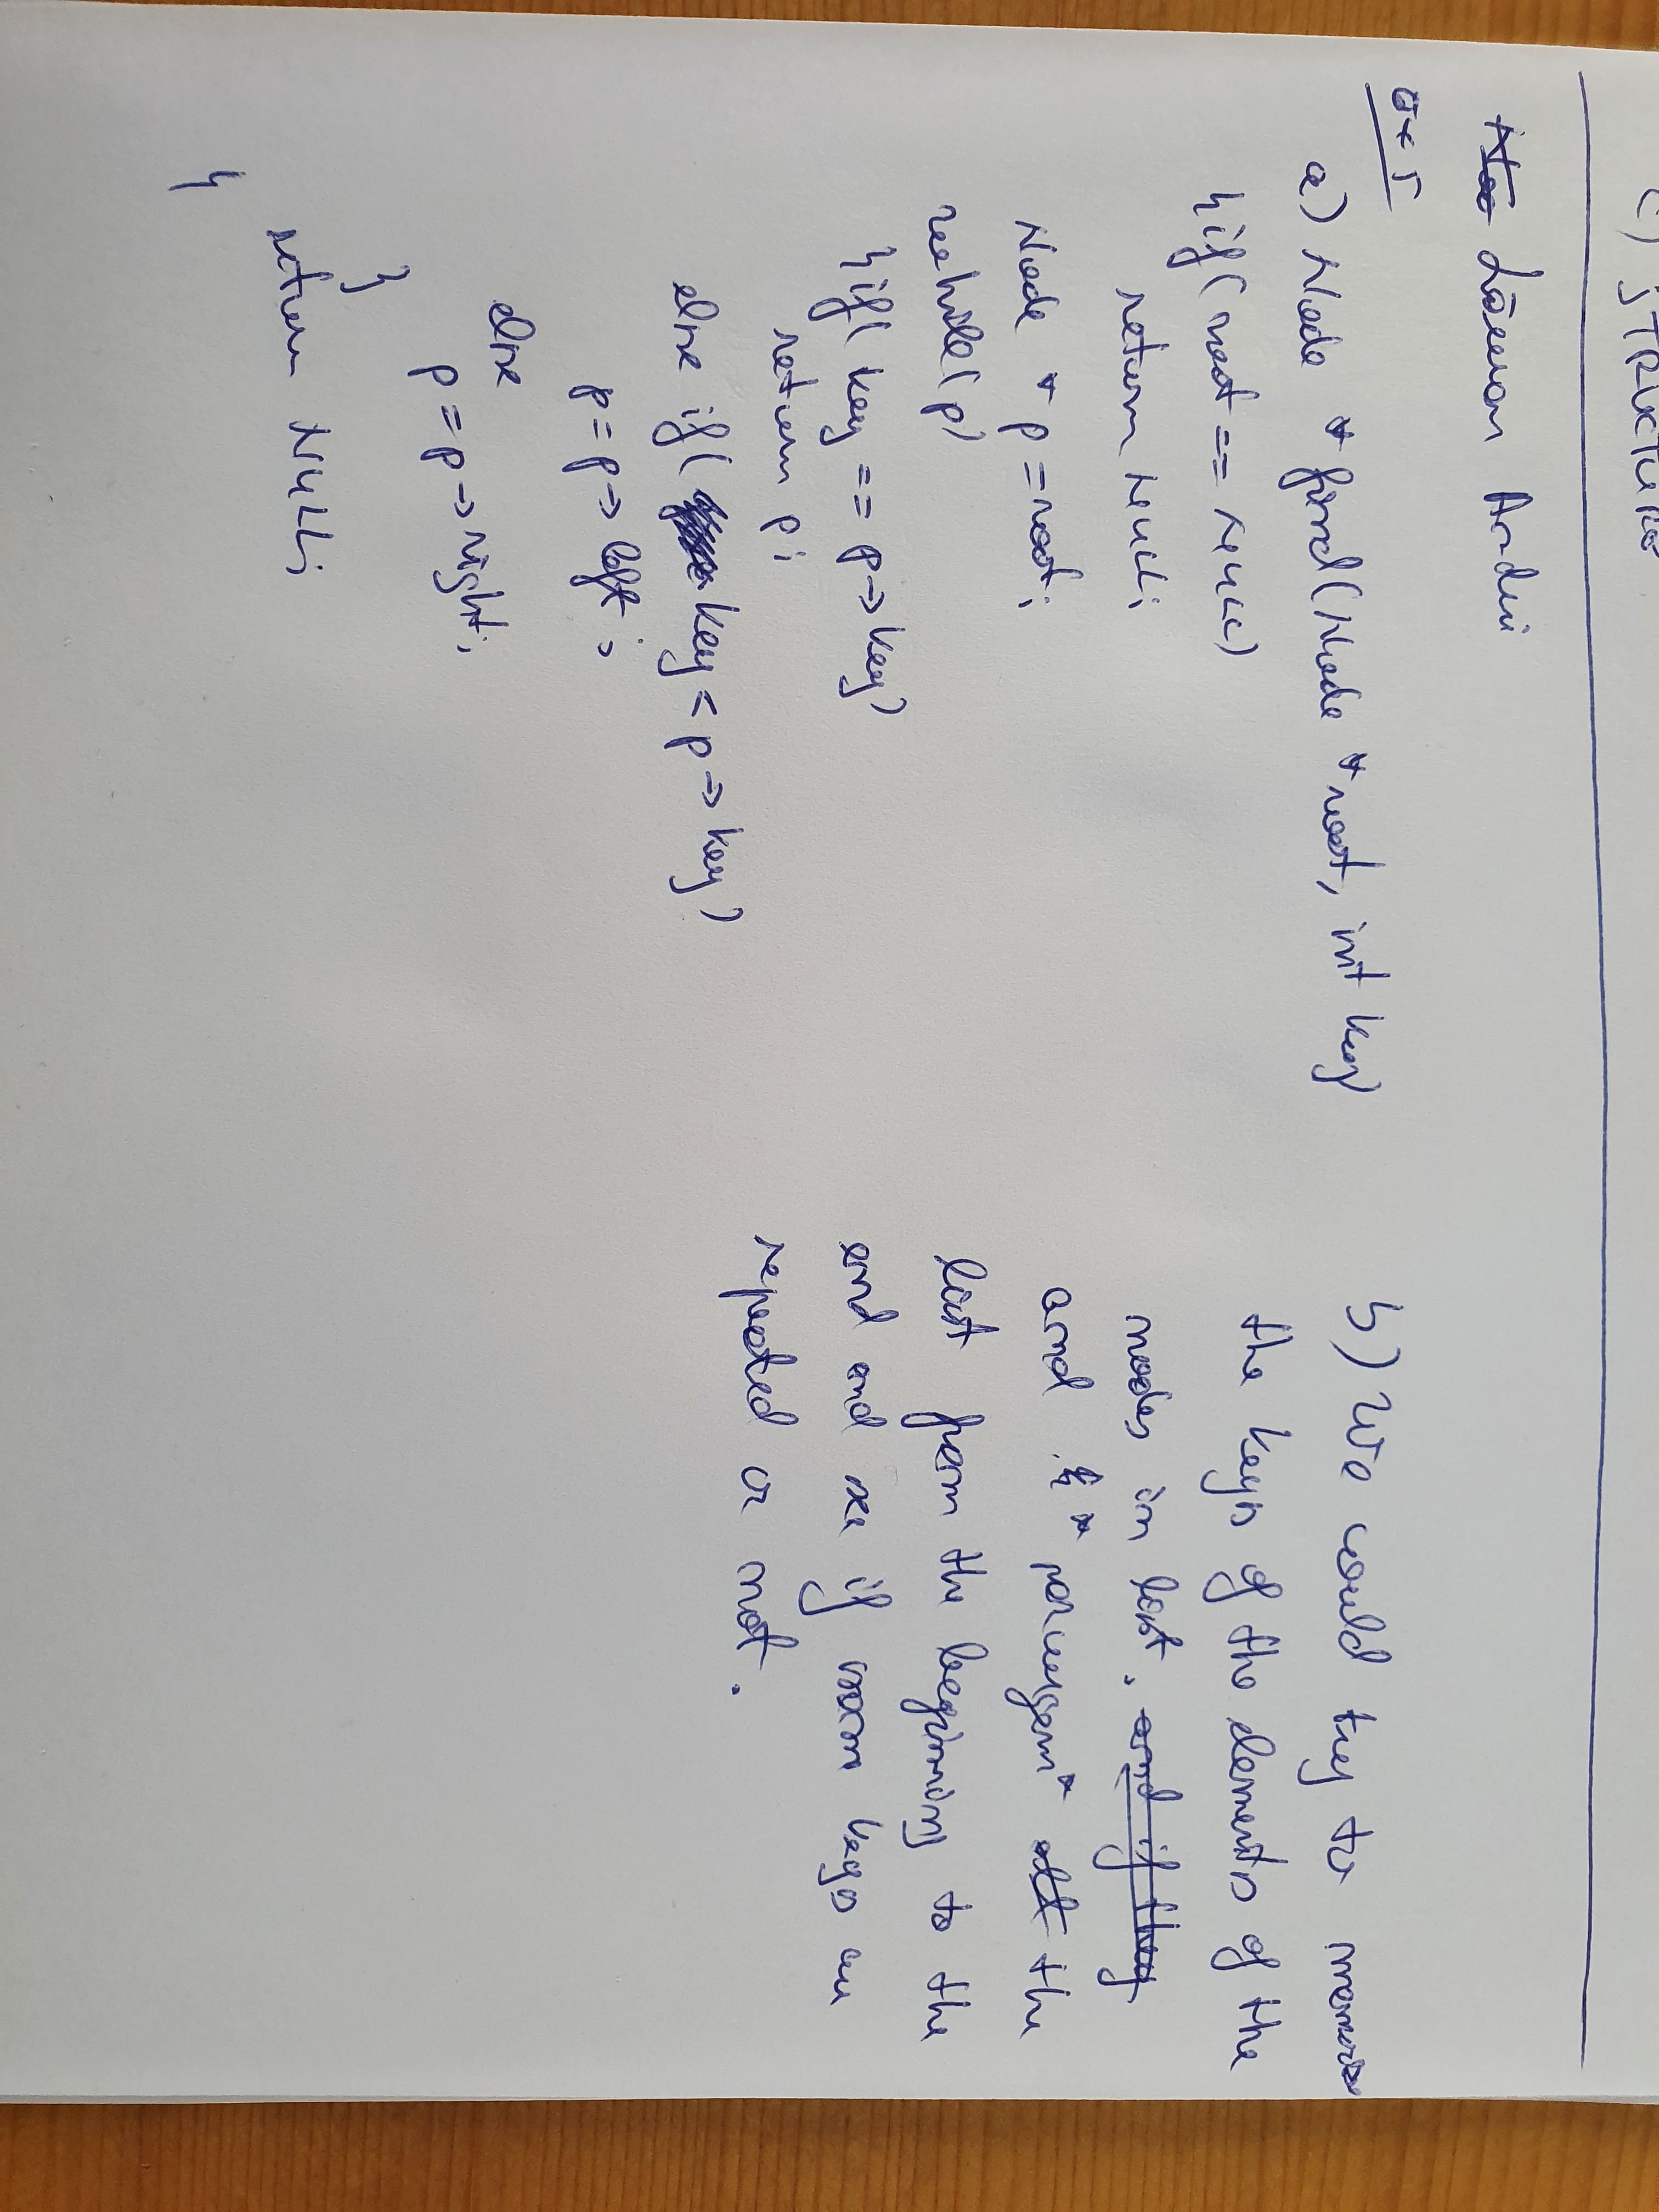 c) STRUCTURA
Ardei
ex 5
a) Node * find(Node * root, int key)
{ if( root == NULL)
return NULL;
Node * p = root;
while( p)
{ if( key == p->key)
return p;
else if( key < p->key)
p = p->left;
else
p = p->right;
}
return NULL;
}
b) We could try to
the keys of the elements of the
nodes in list. and if they
and the
list from the beginning to the
end and see if keys are
repeated or not.